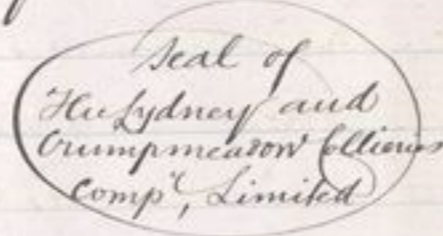 Seal of
The Lydney and
Crumpmeadow Collieries
Comp.y, Limited